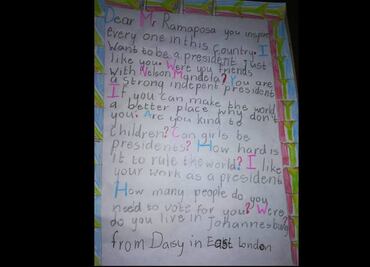 Dear Mr Ramaposa you inspire
every one in this country. I
Want to be a president just
like you. Were you friends
with Nelson Mandela? You are
a strong indepent president
If you can make the world
a better place why don't
you. Are you kind to
children? Can girls be
presidents? How hard is
it to rule the world? I like
your work as a president
How many people do you
need to vote for you? Were
do you live in Johannesburg
from Daisy in East London